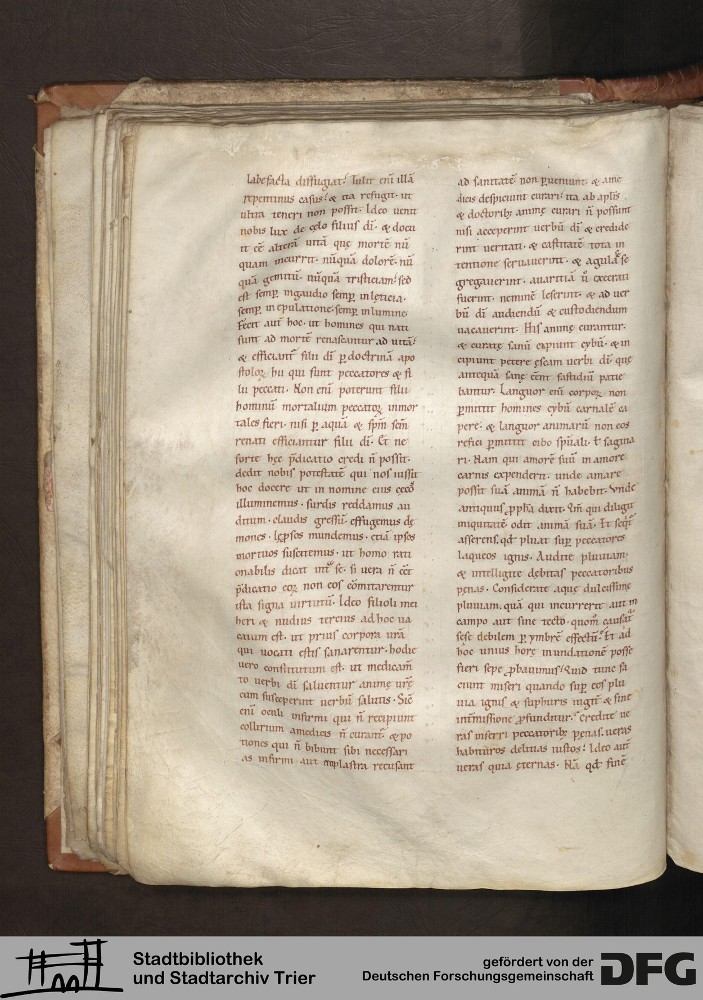 labefacta diffugiat. Tulit eni illā
repentinus casus. & ita refugit. ut
ultra teneri non possit. Ideo uenit
nobis lux de cęlo filius dī. & docu
it eē alterā uitā quę mortē nū
quam incurrit. nūquā dolorē. nū
quā gemitū. nūquā tristiciam. sed
est semꝑ ingaudio semꝑ inleticia.
semꝑ in epulatione. semꝑ inlumine.
Fecit aut̄ hoc. ut homines qui nati
sunt ad mortē renascantur ad uitā.
& efficiant̄ filii dī ꝑ doctrinā apo
stoloꝝ hii qui sunt peccatores & fi
lii peccati. Non enī poterunt filii
hominū mortalium peccatoꝝ inmor
tales fieri. nisi ꝑ aquā & sp̄m scm̄
renati efficiantur filii dī. Et ne
forte hęc p̄dicatio credi n̄ possit.
dedit nobis potestatē qui nos iussit
hoc docere ut in nomine eius cęcos
illuminemus. surdis reddamus au
ditum. claudis gressū. effugemus dę
mones. lęprosos mundemus. etiā ipsos
mortuos suscitemus. ut homo rati
onabilis dicat int̄ se. si uera n̄ eēt
p̄dicatio eoꝝ non eos comitarentur
ista signa uirtutū. Ideo filioli mei
heri & nudius tercius ad hoc uo
catum est. ut prius corpora urā
qui uocati estis sanarentur. hodie
uero constitutum est. ut medicam̄
to uerbi dī saluentur animę urę
cum susceperint uerbū salutis. Sic
enī oculi infirmi qui n̄ recipiunt
collirium amedicis n̄ curant̄. & po
tiones qui n̄ bibunt sibi necessari
as infirmi aut emplastra recusant
ad sanitatē non ꝑueniunt. & a me
dicis despiciunt curari. ita ab aplīs
& doctoribꝫ animę curari n̄ possunt
nisi acceperint uerbū dī & credide
rint ueritati. & castitatē tota in
tentione seruauerint. & agula se
gregauerint. auaritiā ū execrati
fuerint. neminē leserint. & ad uer
bū dī audiendū & custodiendum
uacauerint. His animę curantur.
& curatę sanū capiunt cybū. & in
cipiunt petere ęscam uerbi dī quę
antequā sanę eēnt fastidiū patie
bantur. Languor enī corporꝫ non
ꝑmittit homines cybū carnalē ca
pere. & languor animarū non eos
refici ꝑmittit cibo spūali. ł sagina
ri. Nam qui amorē suū in amore
carnis expenderit. unde amare
possit suā animā n̄ habebit. Unde
antiquus ꝓpha dixit. Qm̄ qui diligit
iniquitatē odit animā suā. Et seqit̄
asserens. qd pluat suꝑ peccatores
laqueos ignis. Audite pluuiam.
& intelligite dębitas peccatoribus
pęnas. Considerate aquę dulcissimę
pluuiam. quā qui incurrerit aut in
campo aut sine tecto. quom̄ causat̄
sese debilem ꝑ ymbrē effectū. Et ad
hoc unius horę inundationē posse
fieri sepe ꝓbauimus. Quid tunc fa
ciunt miseri quando suꝑ eos plu
uia ignis & sulphuris iugit̄ & sine
int̄missione ꝓfunditur. Credite ue
ras inferri peccatoribꝫ pęnas. ueras
habituros delitias iustos. Ideo aut̄
ueras quia ęternas. Nā qd finē
Stadtbibliothek
und Stadtarchiv Trier
gefördert von der
Deutschen Forschungsgemeinschaft
DFG